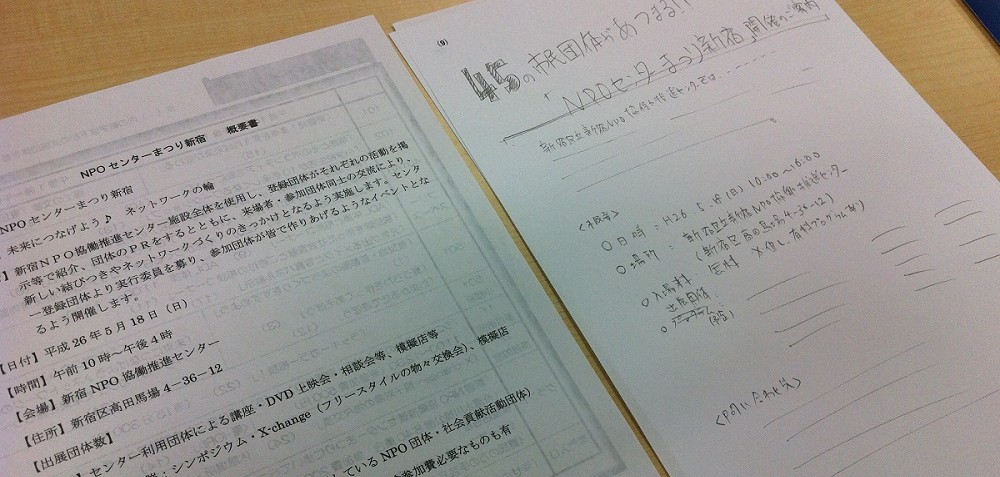 NPO センターまつり新宿　概要書
NPO センターまつり新宿
未来につなげよう♪　ネットワークの輪
】新宿NPO協働推進センター施設全体を使用し、登録団体がそれぞれの活動を掲
示等で紹介、団体のPRをするとともに、来場者・参加団体同士の交流により、
新しい結びつきやネットワークづくりのきっかけとなるよう実施します。センタ
ー登録団体より実行委員を募り、参加団体が皆で作りあげるようなイベントとな
るよう開催します。
【日付】平成26年5月18日（日）
【時間】午前10時～午後4時
【会場】新宿NPO協働推進センター
【住所】新宿区高田馬場4－36－12
【出展団体数】
センター利用団体による講座・DVD上映会・相談会等、模擬店等
：シンポジウム・X-change（フリースタイルの物々交換会）、模擬店
しているNPO団体・社会貢献活動団体）
参加費必要なものも有
(9)
45の市民団体があつまる!!
「NPOセンターまつり新宿」開催のご案内
新宿区立新宿NPO協働推進センターでは、
<概要>
○日時：H26 5.18(日) 10:00～16:00
○場所：新宿区立新宿NPO協働推進センター
(新宿区高田馬場4-36-12)
○入場料：無料 ※但し、有料プログラムあり
出展団体
(予定)